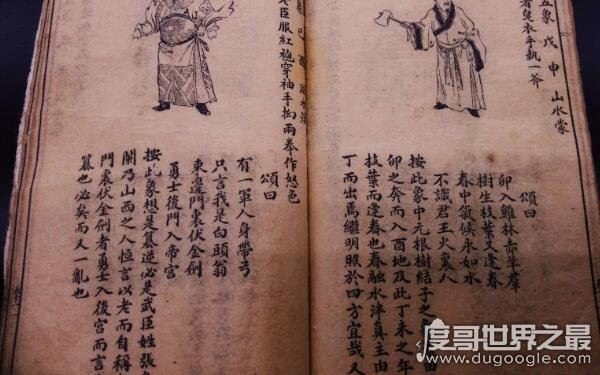 五象 戊申 山水蒙
衣手執一斧
頌曰
卯入雞林赤羊群
樹生枝葉又逢春
春中氣候永如水
不識君王火裏人
按此象中元根樹結子之
卯之奔而入酉地及此丁未之年
枝葉而逢春也春融水泮真主由
丁而出焉繼明照於四方宜哉又
己酉 水渙
臣服紅袍穿袖手抝兩拳作怒色
頌曰
有一軍人身帶弓
只言我是白頭翁
東邊門裏伏金劍
勇士後門入帝宮
按此象想是篡逆必是武臣姓張
乃山西之人恒言以老而自稱
門裏伏金劍者勇士入後宮而言
篡也必矣而又一亂也
度哥世界之最
www.dugoogle.com